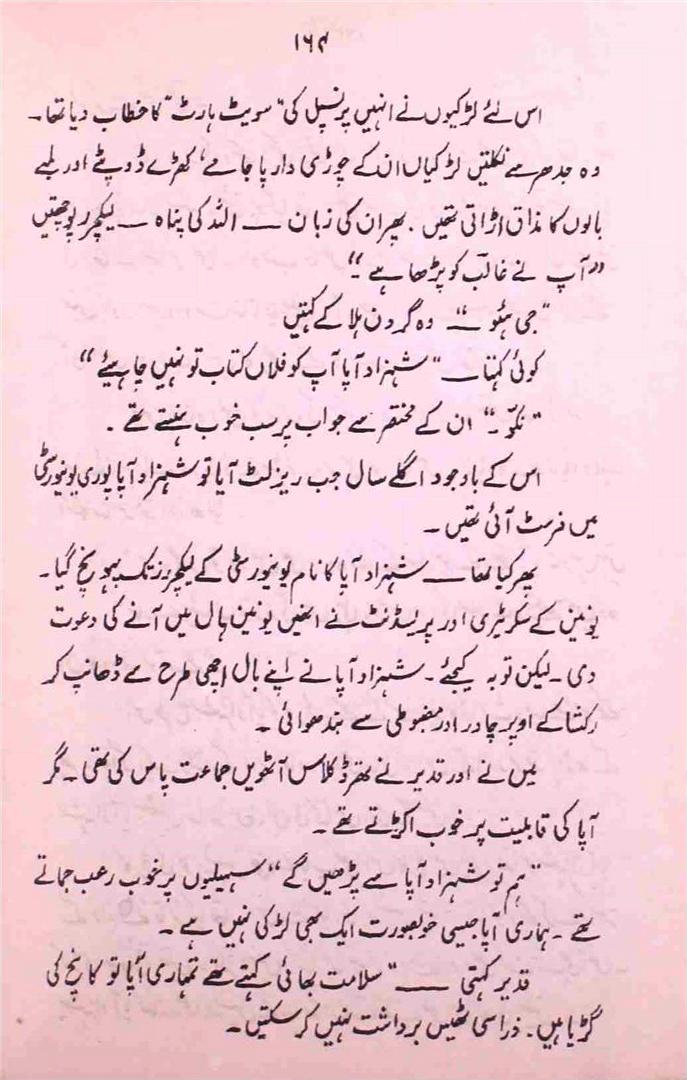 ۱۶۴
اس لئے لڑکیوں نے انہیں پرنسپل کی "سویٹ ہارٹ" کا خطاب دیا تھا۔
وہ جدھر سے نکلتیں لڑکیاں ان کے چوڑی دار پاجامے، کھڑے ڈوپٹے اور لمبے
بالوں کا مذاق اڑاتی تھیں۔ پھر ان کی زبان ــــ اللہ کی پناہ ــــ لیکچرر پوچھتیں
"آپ نے غالبؔ کو پڑھا ہے"۔
"جی ہئو ــــ" وہ گردن ہلا کے کہتیں
کوئی کہتا ــــ "شہزاد آپا آپ کو فلاں کتاب تو نہیں چاہیئے"
"نکّو۔" ان کے مختصر سے جواب پر سب خوب ہنستے تھے۔
اس کے باوجود اگلے سال جب ریزلٹ آیا تو شہزاد آپا پوری یونیورسٹی
میں فرسٹ آئی تھیں۔
پھر کیا تھا ــــ شہزاد آپا کا نام یونیورسٹی کے لیکچررز تک پہونچ گیا۔
یونین کے سکریٹری اور پریسڈنٹ نے انھیں یونین ہال میں آنے کی دعوت
دی۔ لیکن توبہ کیجئے۔ شہزاد آپا نے اپنے بال اچھی طرح سے ڈھانپ کر
رکشا کے اوپر چادر اور مضبوطی سے بندھوائی۔
میں نے اور قدیر نے تھرڈ کلاس آٹھویں جماعت پاس کی تھی۔ مگر
آپا کی قابلیت پر خوب اکڑتے تھے۔
"ہم تو شہزاد آپا سے پڑھیں گے" سہیلیوں پر خوب رعب جماتے
تھے۔ ہماری آپا جیسی خوبصورت ایک بھی لڑکی نہیں ہے۔
قدیر کہتی ــــ "سلامت بھائی کہتے تھے تمہاری آپا تو کانچ کی
گڑیا ہیں۔ ذرا سی ٹھیس برداشت نہیں کر سکتیں۔